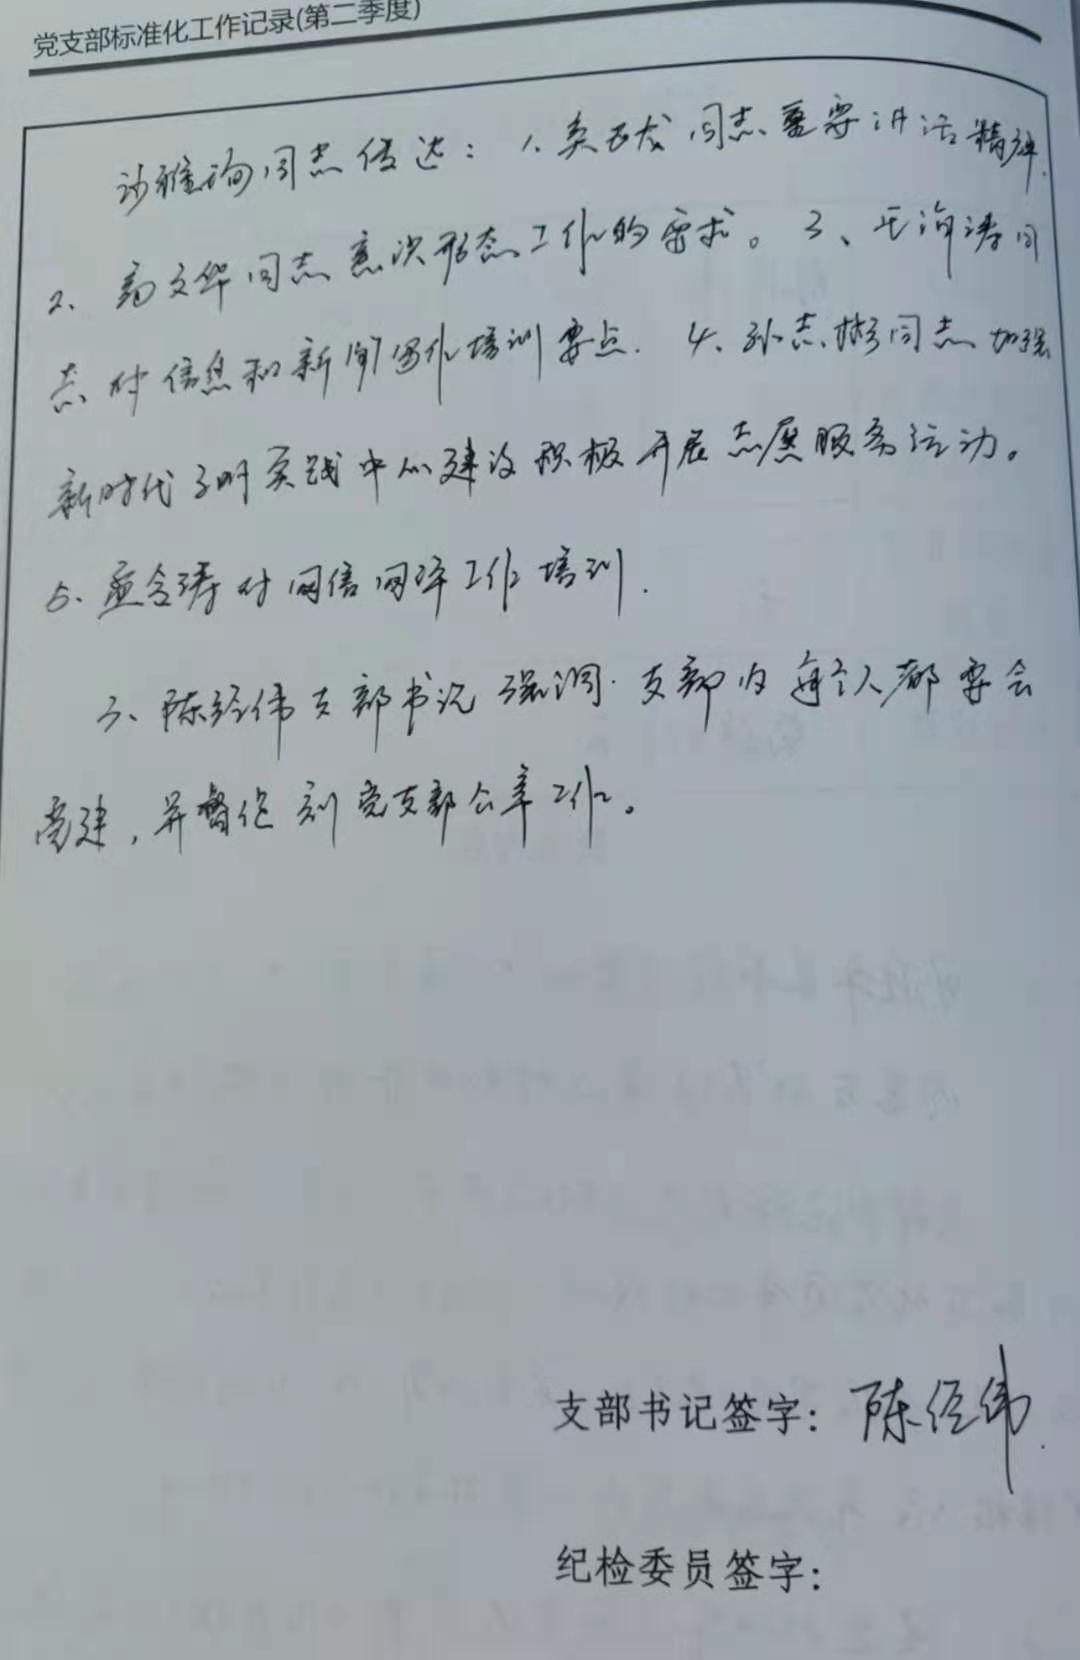 党支部标准化工作记录(第二季度)
沙雅洵同志传达：1、类延成同志重要讲话精神.
2、高文华同志意识形态工作的要求。3、王海涛同
志对信息和新闻写作培训要点. 4、孙志彬同志加强
新时代文明实践中心建设积极开展志愿服务活动。
5、孟令涛对网信网评工作培训.
3、陈经纬支部书记强调.支部内每个人都要会
党建，并督促到党支部公章工作。
支部书记签字：陈经纬
纪检委员签字：